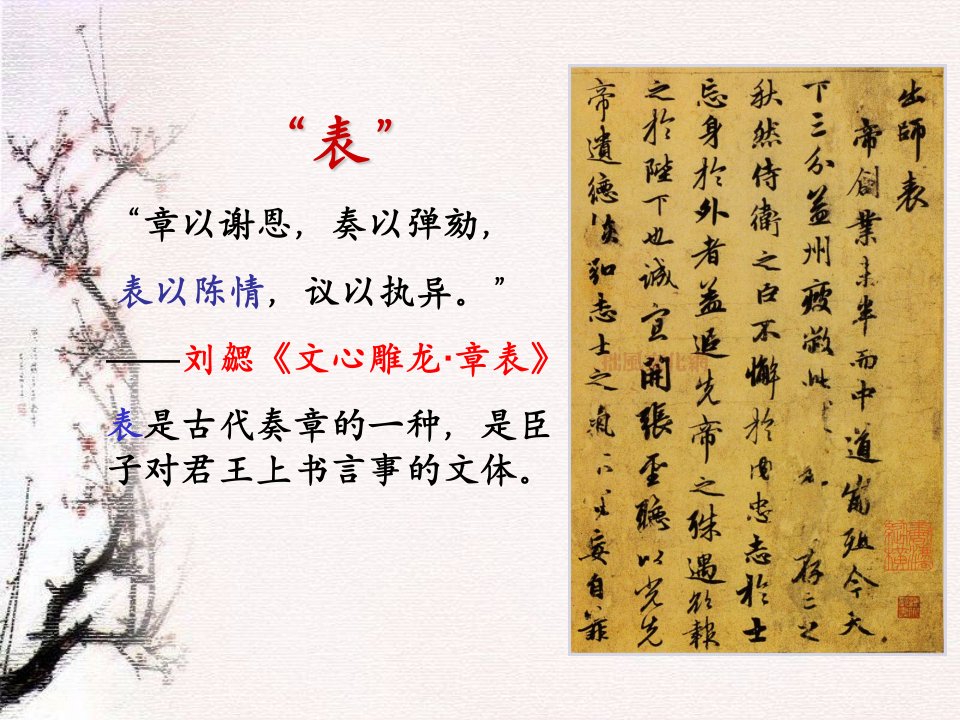 “表”
“章以谢恩，奏以弹劾，
表以陈情，议以执异。”
——刘勰《文心雕龙·章表》
表是古代奏章的一种，是臣
子对君王上书言事的文体。
出師表
帝創業未半而中道崩殂今天
下三分益州疲敝此存亡之
秋然侍衛之臣不懈於内忠志於士
忘身於外者益追先帝之殊遇欲報
之於陛下也誠宜開張聖聽以光先
帝遺德恢弘志士之氣不宜妄自菲